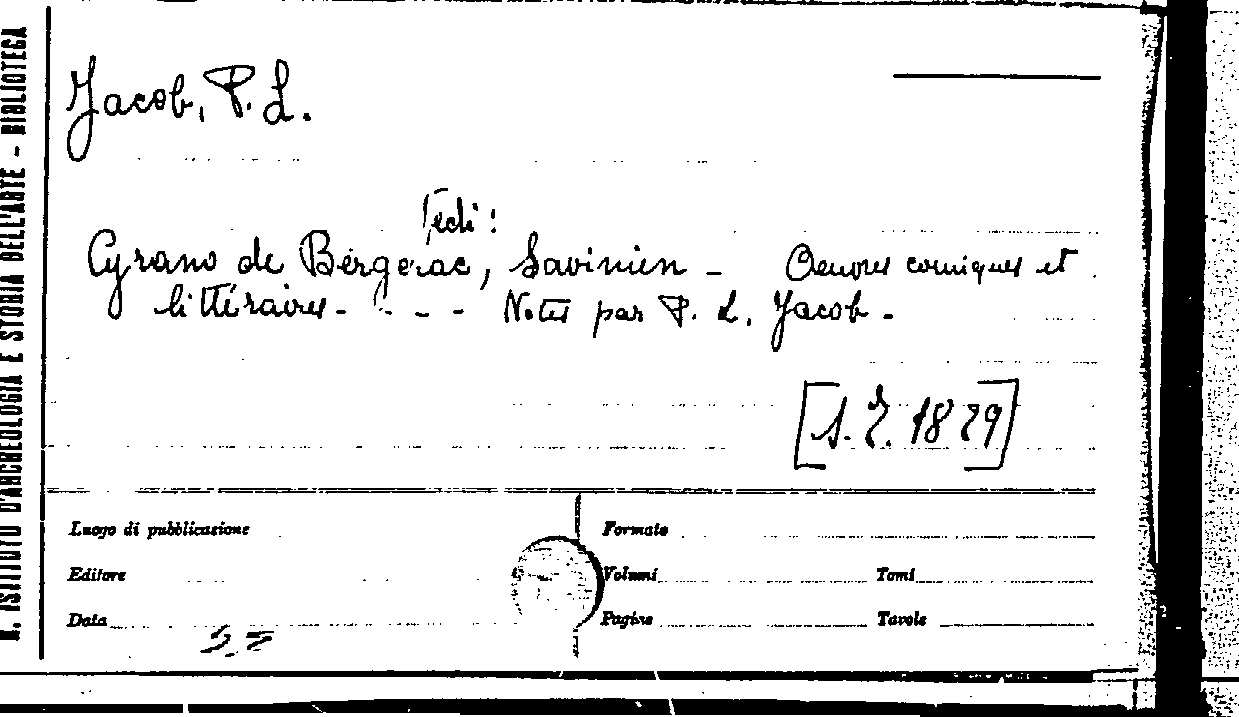 R. ISTITUTO D'ARCHEOLOGIA E STORIA DELL'ARTE - BIBLIOTECA
Jacob, P. L.
Vedi:
Cyrano de Bergerac, Savinien - Oeuvres comiques et
littéraires - - - - Notes par P. L. Jacob -
[S. E. 1829]
Luogo di pubblicazione
Formato
Editore
Volumi
Tomi
Data
Pagine
Tavole